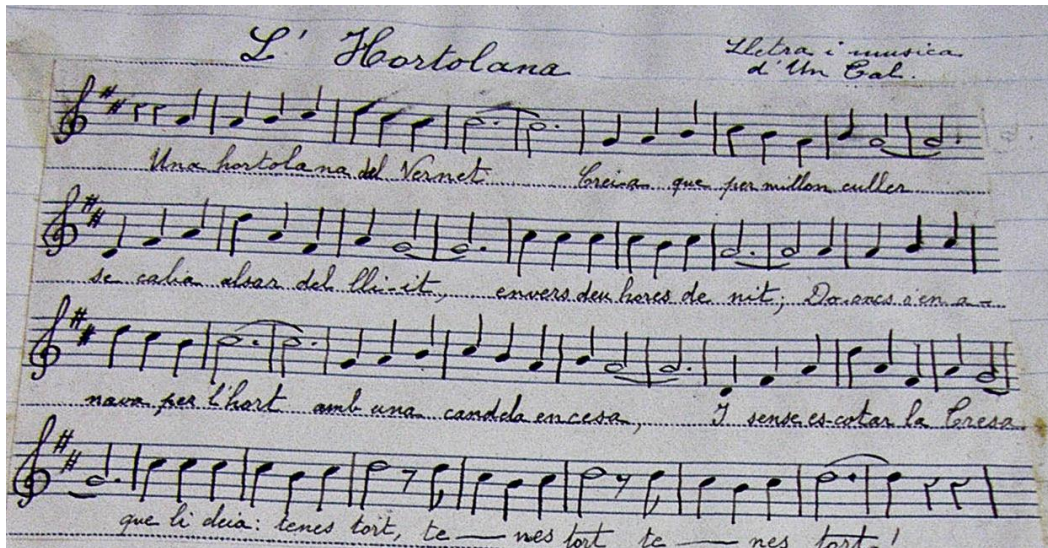 L' Hortolana
Lletra i musica
d'Un Tal.
Una hortolana del Vernet Creia que per millon culler
se calia alsar del lli-it, envers deu hores de nit; Doncs s'en a-
nava per l'hort amb una candela encesa, I sense es-cotar la Cresa
que li deia: tenes tort, te — nes tort te — nes tort!